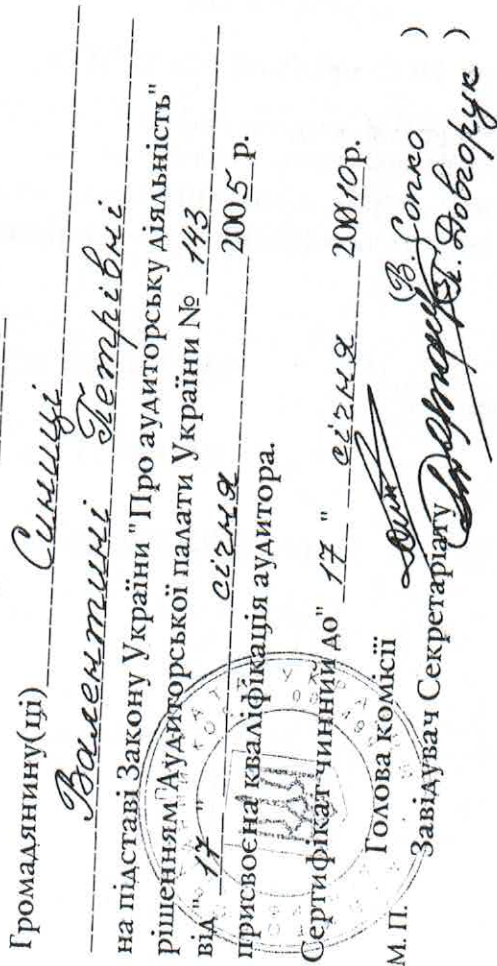 Громадянину(ці) Синиці
Валентині Петрівні
на підставі Закону України "Про аудиторську діяльність"
рішенням Аудиторської палати України № 143
від "17" січня 2005 р.
присвоєна кваліфікація аудитора.
Сертифікат чинний до "17" січня 2010р.
Голова комісії (В. Сопко)
М. П. Завідувач Секретаріату Довгорук )